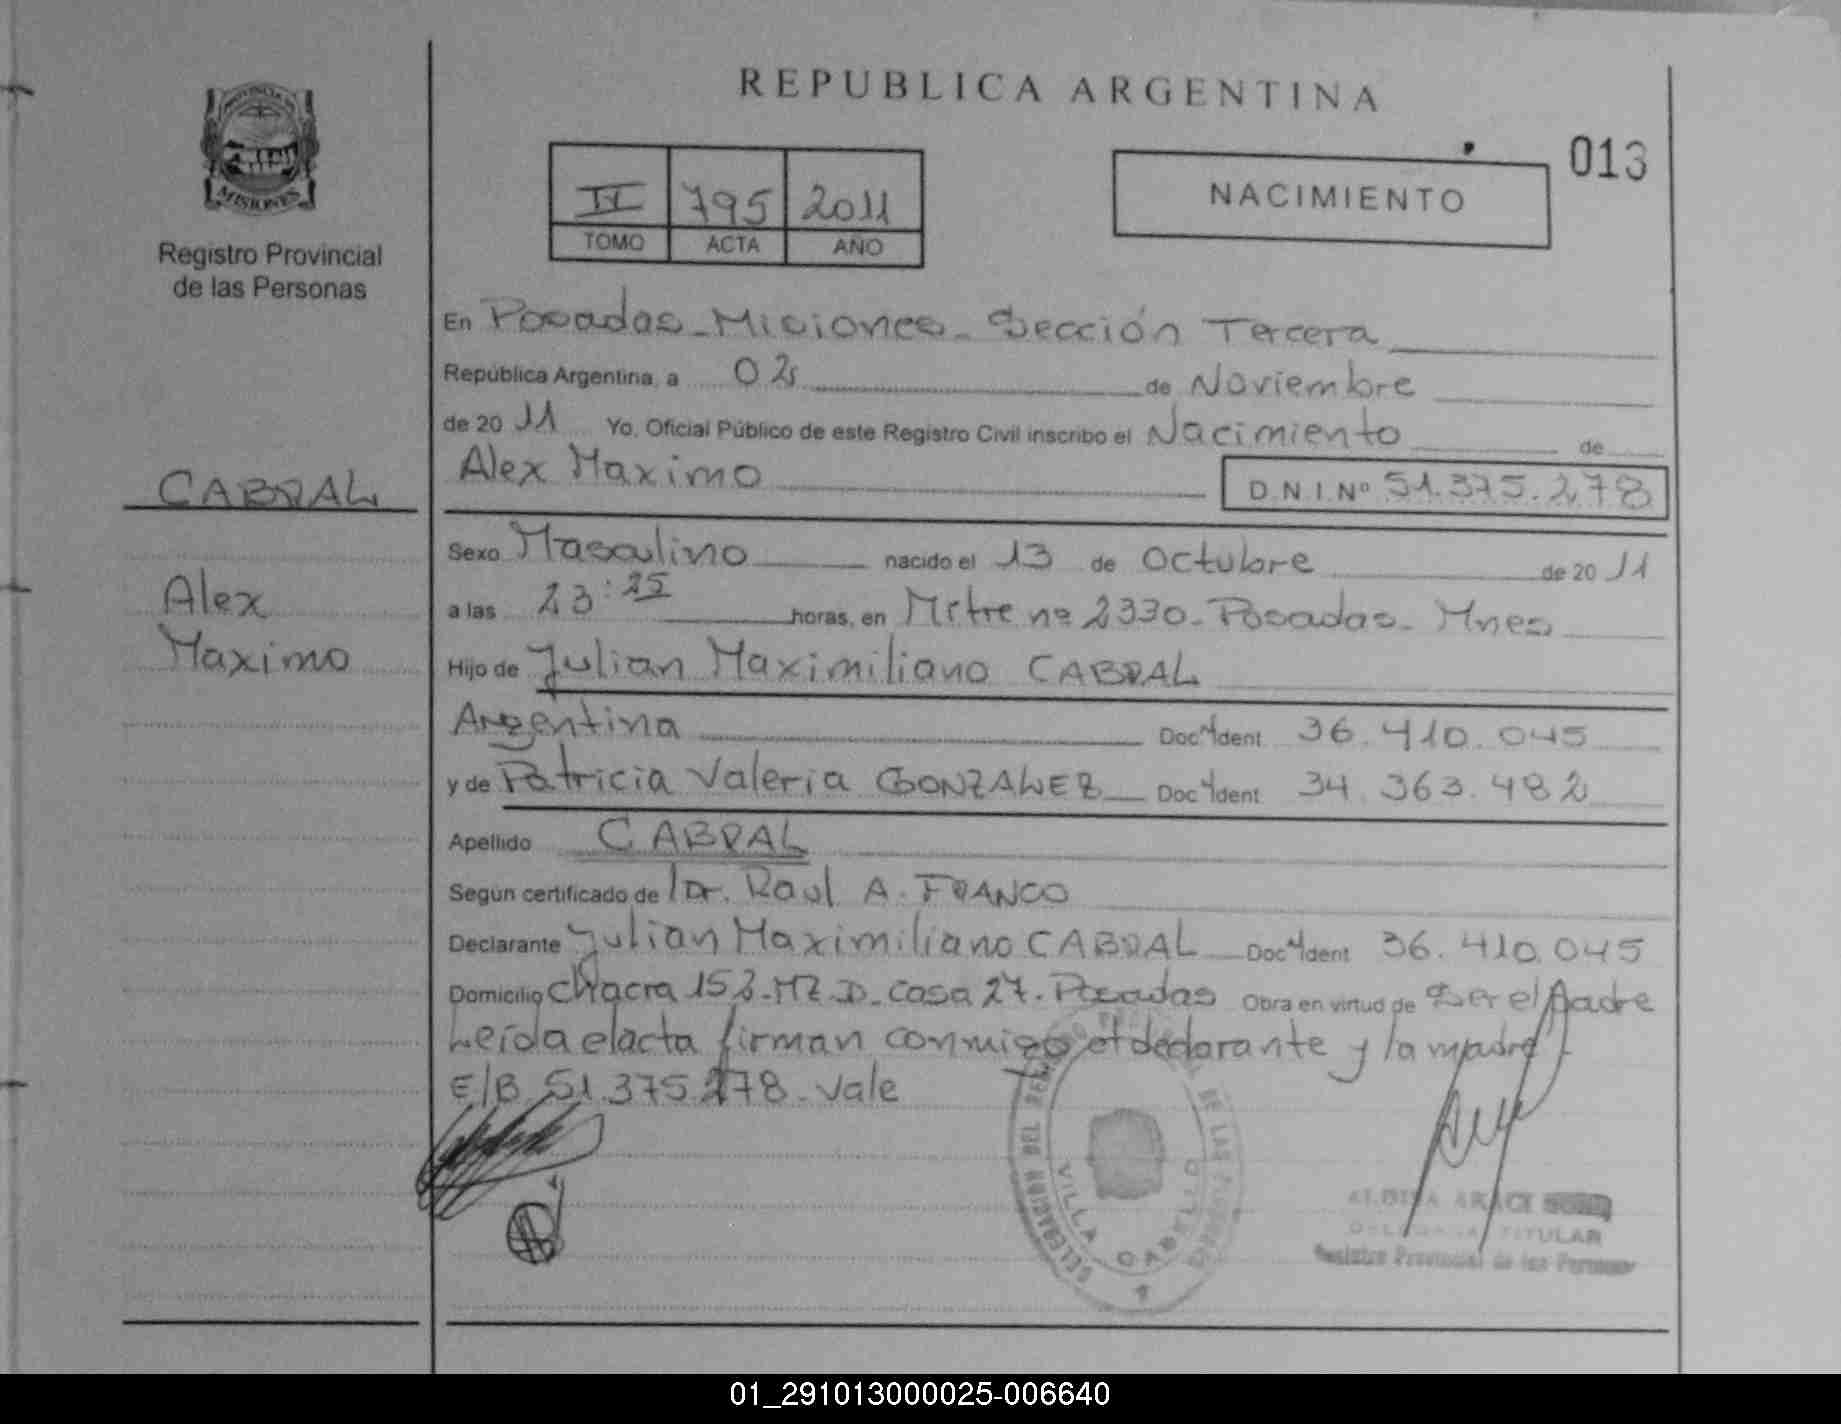 REPUBLICA ARGENTINA
PROVINCIA DE
MISIONES
Registro Provincial
de las Personas
II 795 2011
TOMO ACTA AÑO
NACIMIENTO
013
En Posadas - Misiones - Sección Tercera
República Argentina, a 02 de Noviembre
de 2011 Yo, Oficial Público de este Registro Civil inscribo el Nacimiento de
CABRAL
Alex Maximo D.N.I. Nº 51.375.278
Sexo Masculino nacido el 13 de Octubre de 2011
Alex
a las 23:25 horas, en Mitre nº 2330 - Posadas - Mnes
Maximo
Hijo de Julian Maximiliano CABRAL
Argentina Doc. Ident. 36.410.045
y de Patricia Valeria GONZALEZ Doc. Ident. 34.363.482
Apellido CABRAL
Según certificado de Dr. Raul A. FRANCO
Declarante Julian Maximiliano CABRAL Doc. Ident. 36.410.045
Domicilio Chacra 152 - MZ D - Casa 27 - Posadas Obra en virtud de Ser el padre
Leída el acta firman conmigo el declarante y la madre -
E/B 51.375.278 - Vale
DELEGACION DEL REGISTRO PROVINCIAL DE LAS PERSONAS
VILLA CABELLO
TITULAR
Registro Provincial de las Personas
01_291013000025-006640